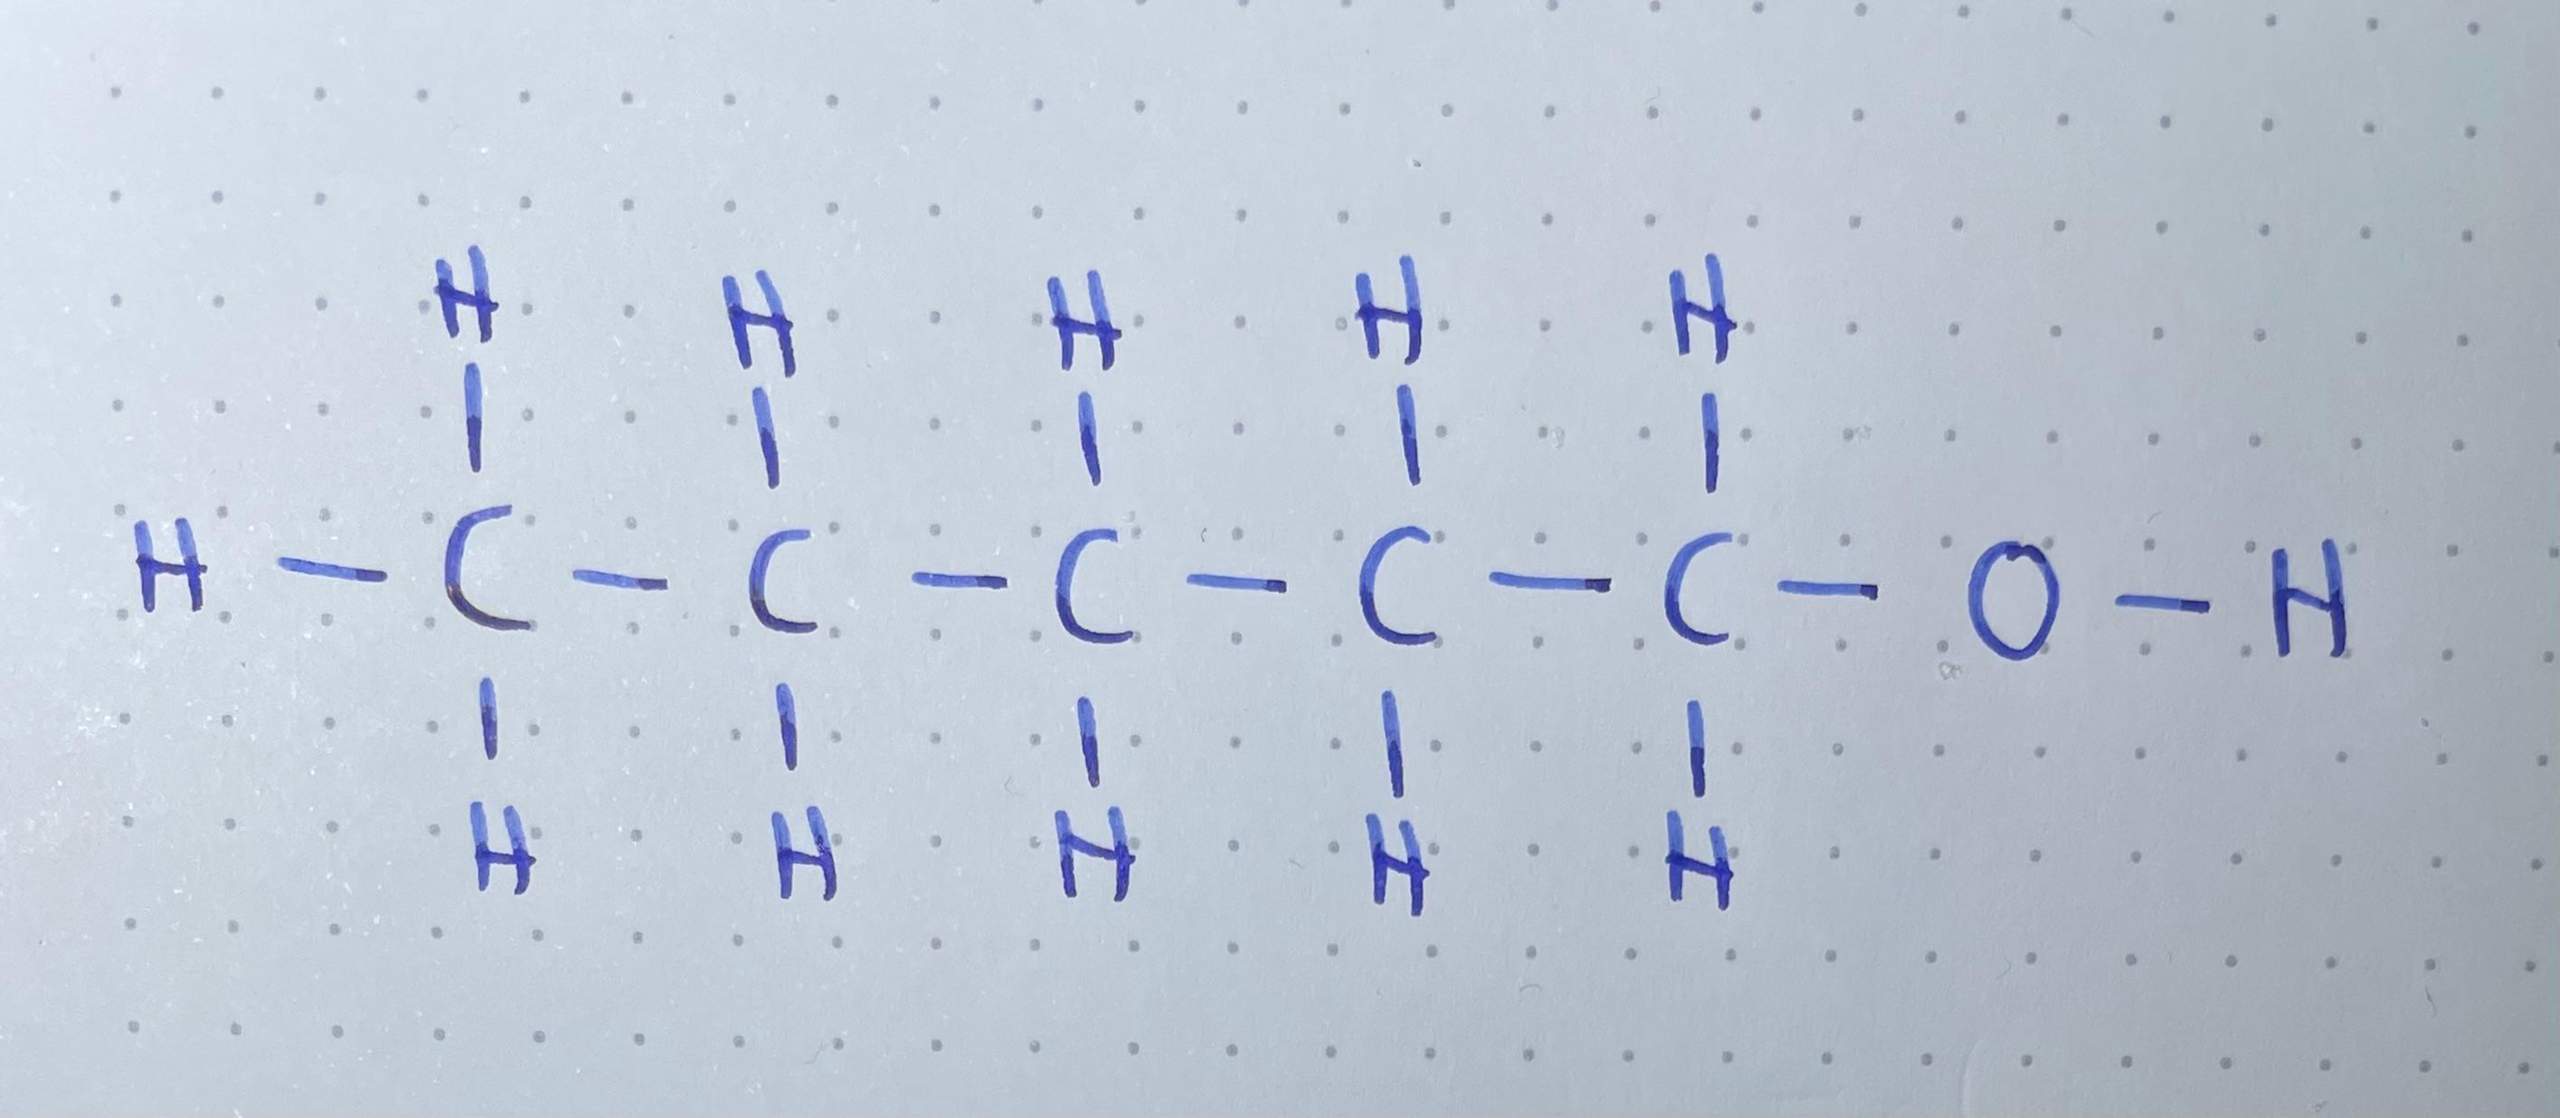 H H H H H
H - C - C - C - C - C - O - H
H H H H H